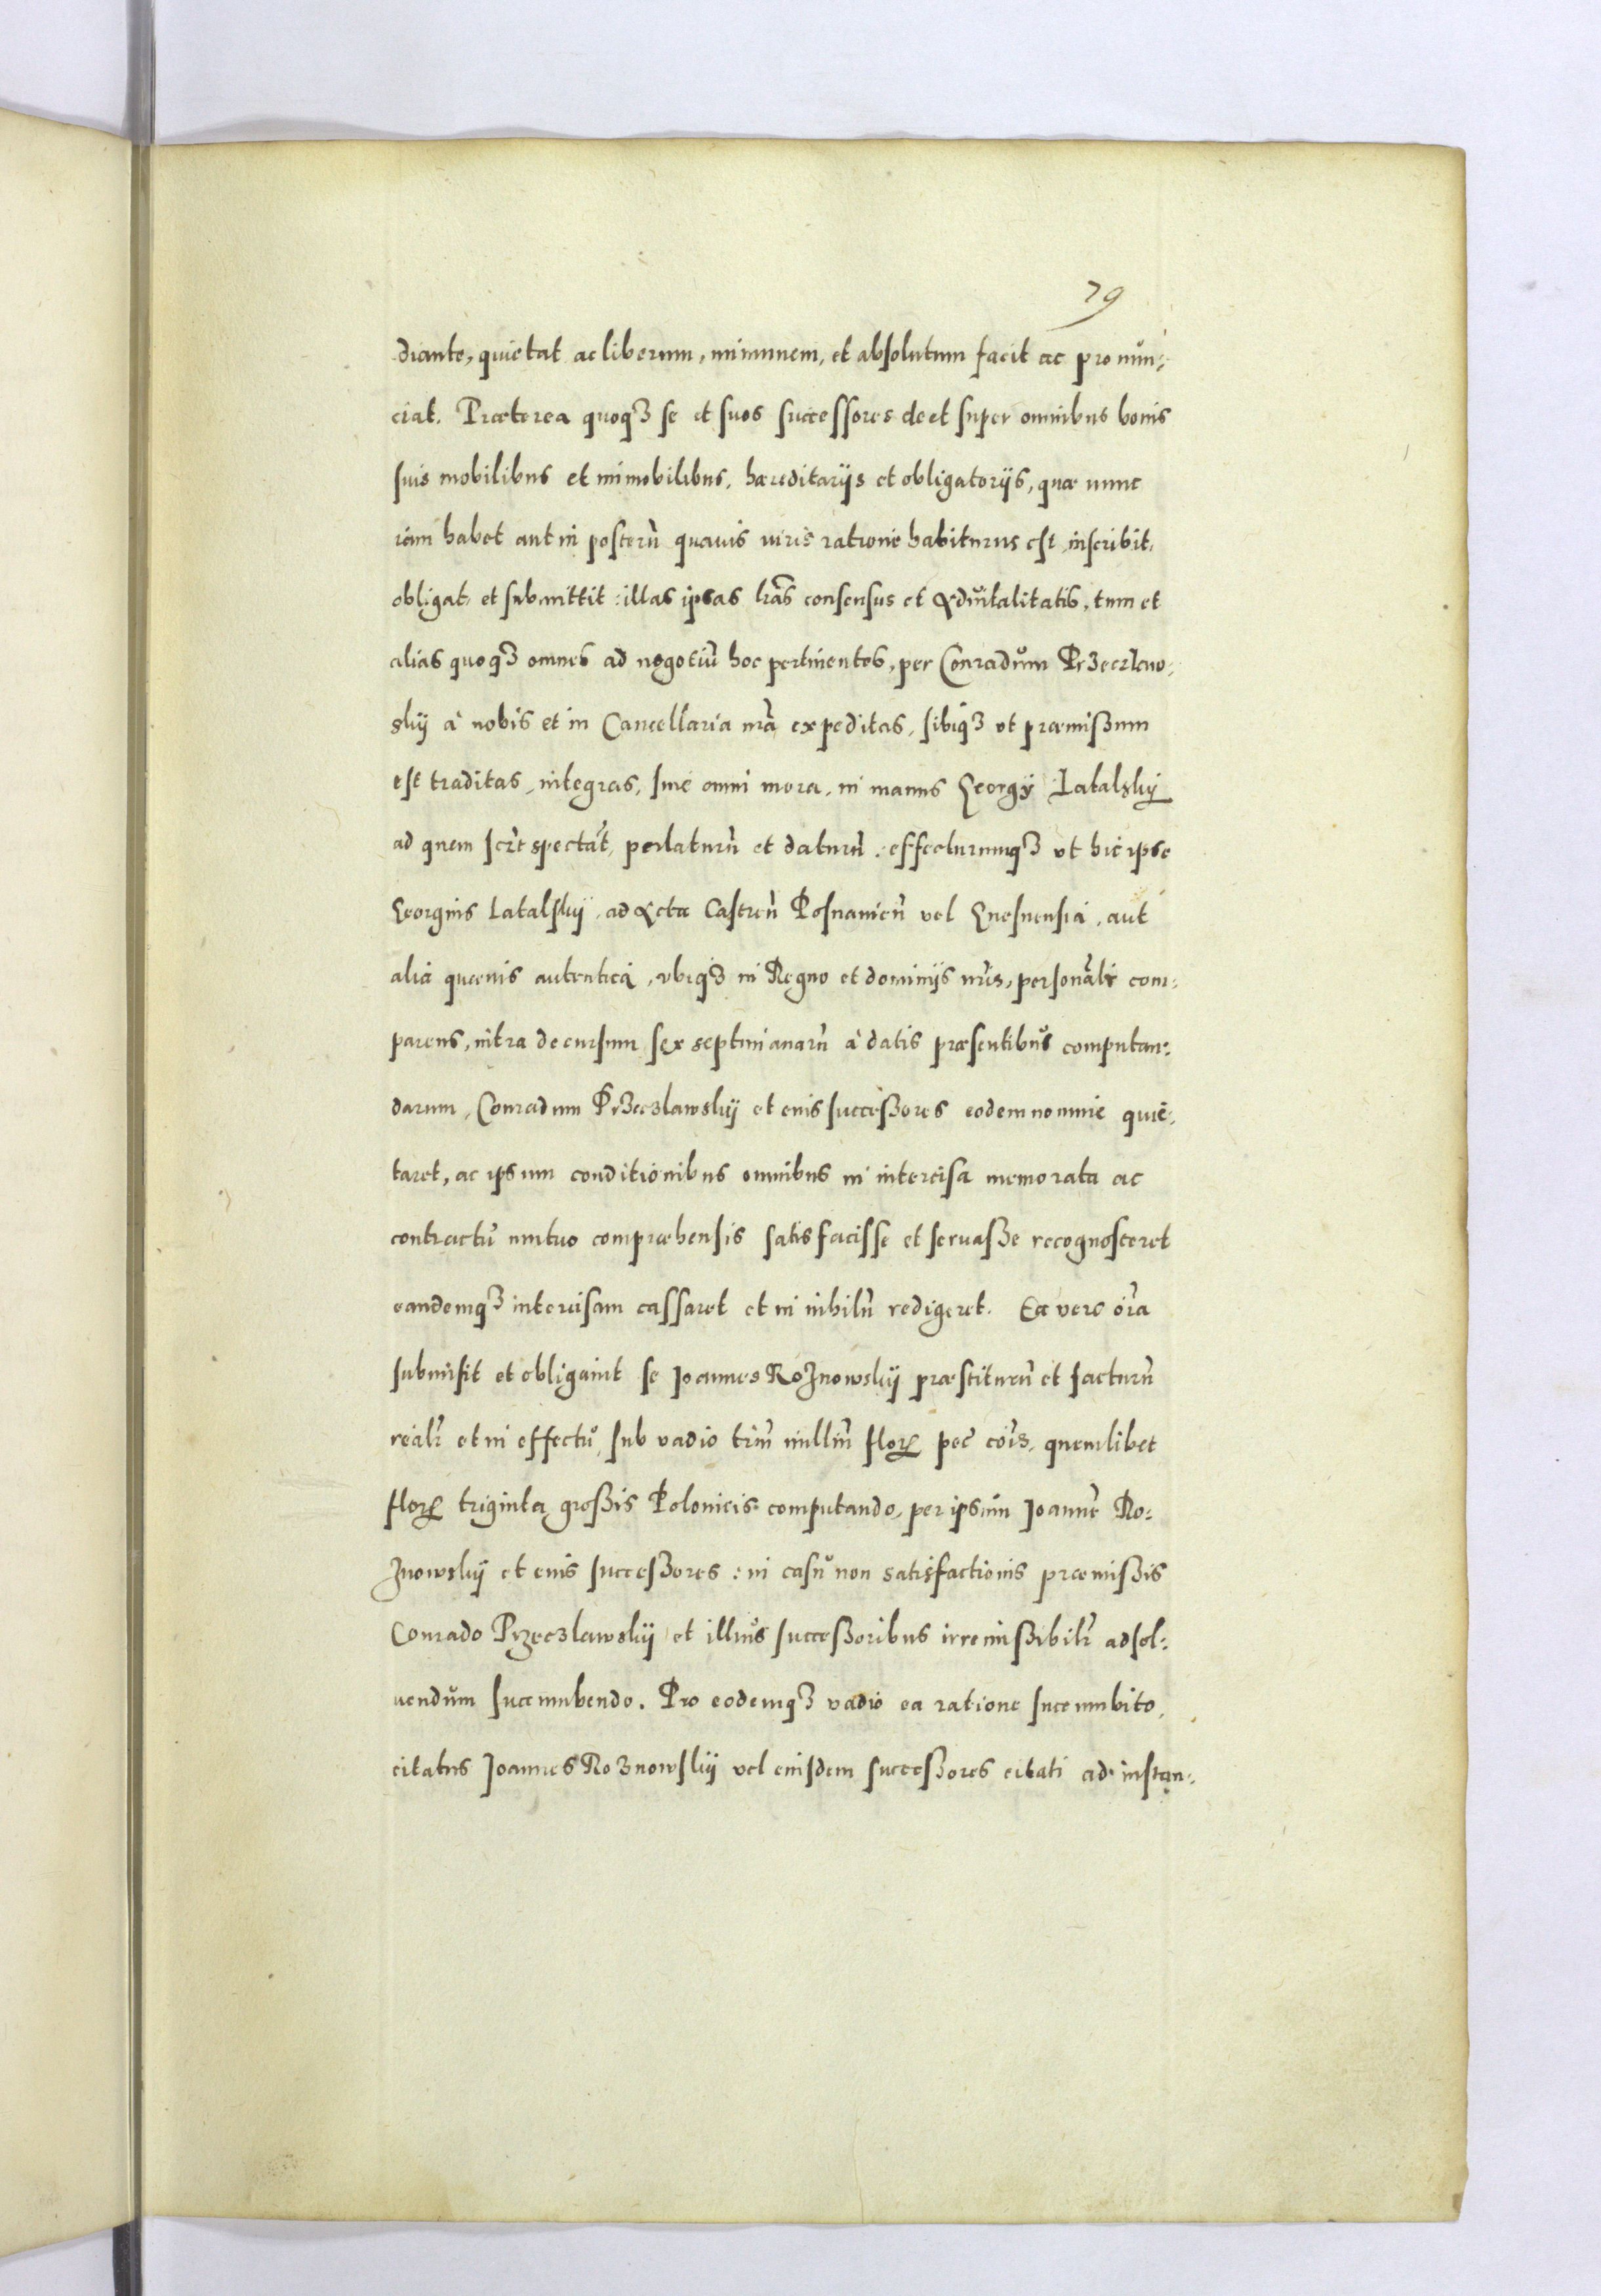 79
diante, quietat ac liberum, immunem, et absolutum facit ac pronun-
ciat. Præterea quoqз se et suos successores de et super omnibus bonis
suis mobilibus et immobilibus, hæreditarijs et obligatorijs, quæ nunc
iam habet aut in posterũ quauis iuris ratione habiturus est, inscribit,
obligat et submittit: illas ipsas lr̃as consensus et Aduitalitatis, tum et
alias quoqз omnes ad negotiũ hoc pertinentes, per Conradum Przeczlaw-
skij à nobis et in Cancellaria nr̃a expeditas, sibiqз vt præmissum
est traditas, integras, sine omni mora, in manus Georgij Latalskij
ad quem spectãt, perlaturũ et daturũ: effecturumqз vt hic ipse
Georgius Latalskij, ad Acta Castreñ Posnanieñ vel Gnesnensia, aut
alia quæuis autentica, vbiqз in Regno et dominijs nr̃is, personalr̃ com-
parens, intra decursum sex septimanarũ à datis præsentibus computan-
darum, Conradum Przeczlawskij et eius successores eodem nomine quie-
taret, ac ipsum conditionibus omnibus in intercisa memorata ac
contractu mutuo compræhensis satisfacisse et seruasse recognosceret
eandemqз intercisam cassaret et in nihilũ redigeret. Ea vero oĩa
submisit et obligauit se Joannes Roznowskij præstiturũ et facturũ
realr̃ et in effectu, sub vadio triũ milliũ flor̃ pec̃ cõis, quemlibet
flor̃ triginta grossis Polonicis computando, per ipsum Joannẽ Ro-
znowskij et eius successores: in casu non satisfactionis præmissis
Conrado Przeczlawskij et illius successoribus irremissibilr̃ adsol-
uendum succumbendo. Pro eodemqз vadio ea ratione succumbito,
citatus Joannes Roznowskij vel eiusdem successores citati ad instan-